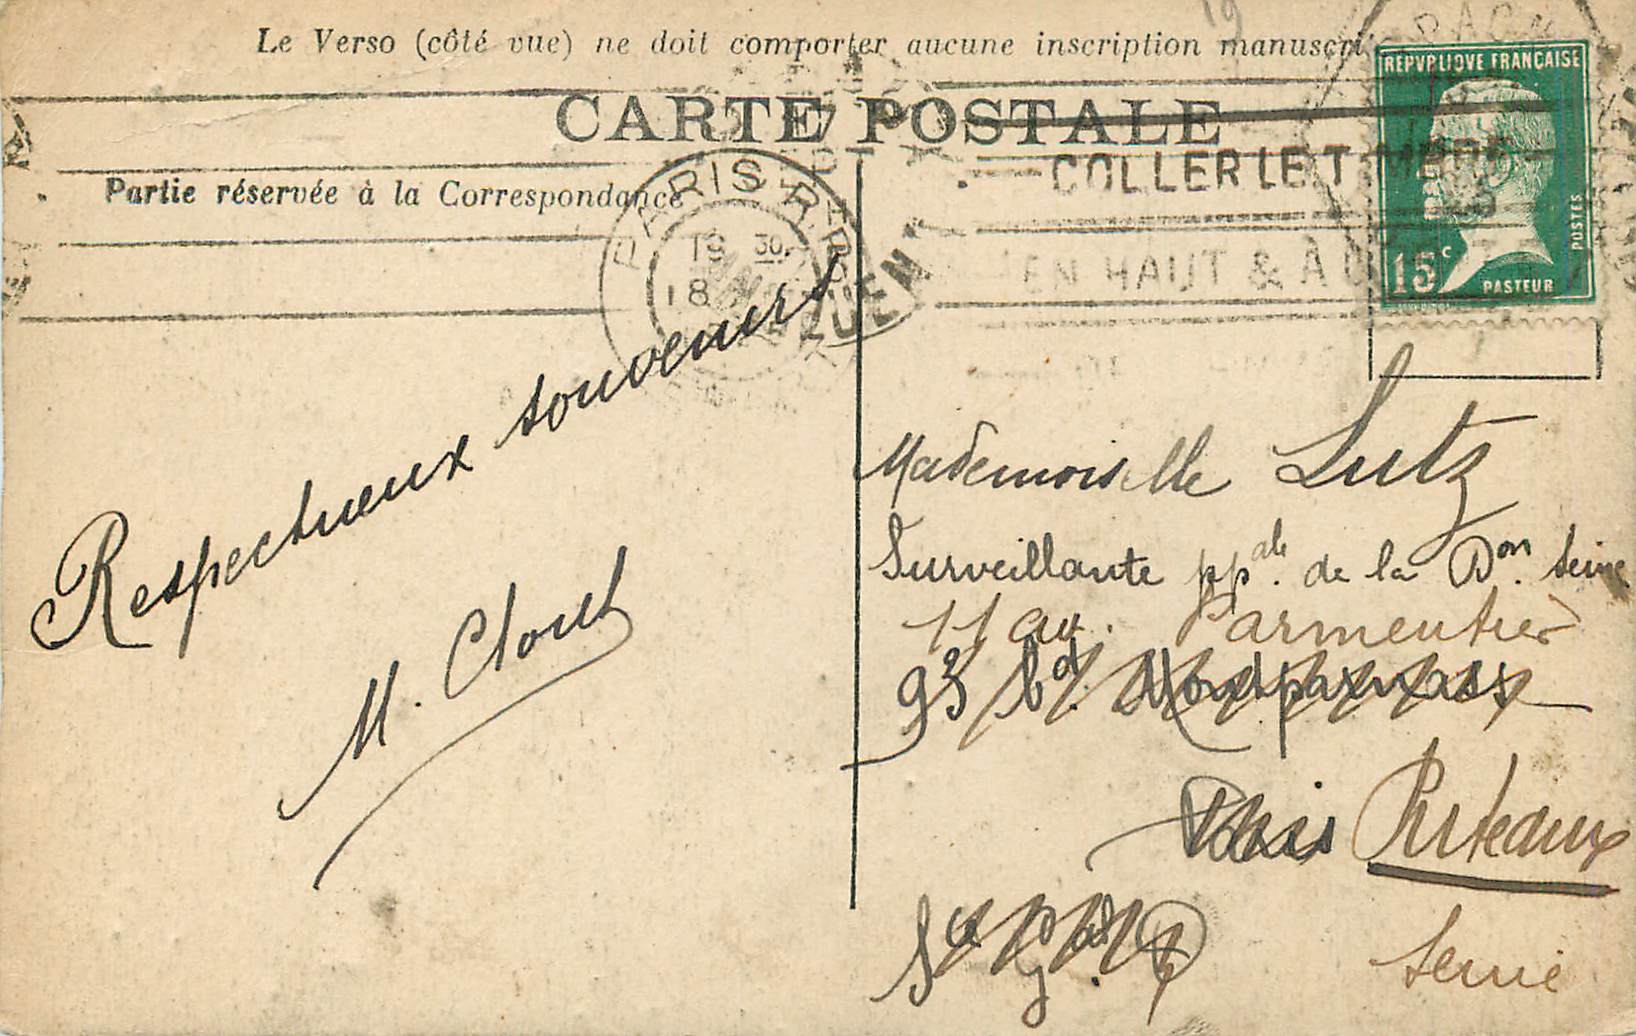 Le Verso (côté vue) ne doit comporter aucune inscription
CARTE POSTALE
Partie réservée à la Correspondance
REPVBLIQVE FRANÇAISE
15c
PASTEUR
POSTES
PARIS R.P.
19 30
18
COLLER LE TIMBRE
EN HAUT & À
Respectueux souvenirs
M. Clouet
Mademoiselle Lutz
Surveillante ppale. de la Don. Seine
11 av. Parmentier
93 bd. Montparnasse
Paris Puteaux
Seine